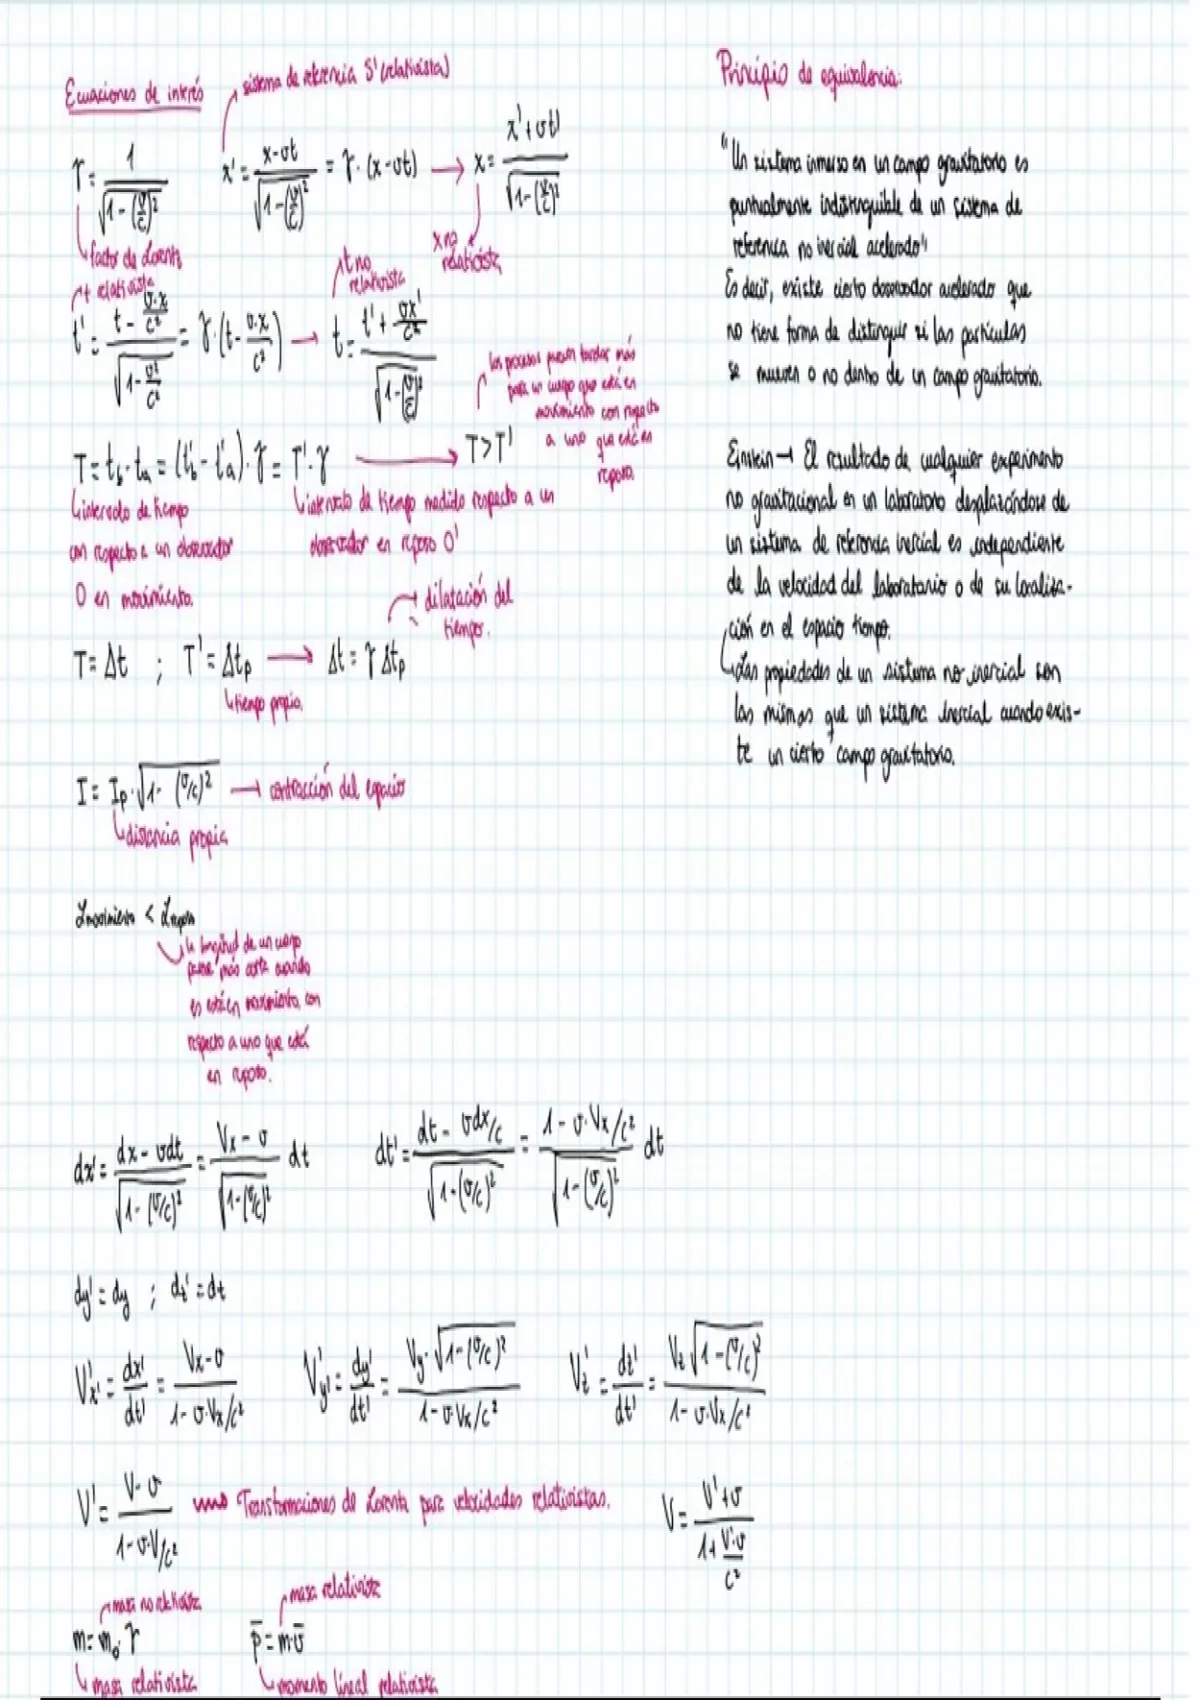 Ecuaciones de interés
sistema de referencia S' (relativista)
γ = 1 / √(1 - (v/c)²)
x' = (x - vt) / √(1 - (v/c)²) = γ · (x - vt) → x = (x' + vt') / √(1 - (v/c)²)
factor de Lorentz
x no relativista
t relativista
t no relativista
t' = (t - v·x/c²) / √(1 - v²/c²) = γ · (t - v·x/c²) → t = (t' + vx'/c²) / √(1 - (v/c)²)
los procesos parecen tardar más
para un cuerpo que está en
movimiento con respecto
a uno que está en
reposo.
T = t_b - t_a = (t'_b - t'_a) · γ = T' · γ → T > T'
intervalo de tiempo
con respecto a un observador
O en movimiento.
intervalo de tiempo medido respecto a un
observador en reposo O'
dilatación del
tiempo.
T = Δt ; T' = Δt_p → Δt = γ Δt_p
tiempo propio.
I = I_p · √(1 - (v/c)²) → contracción del espacio
distancia propia
L movimiento < L reposo
la longitud de un cuerpo
parece más corta cuando
es está en movimiento, con
respecto a uno que está
en reposo.
dx' = (dx - vdt) / √(1 - (v/c)²) = (Vx - v) / √(1 - (v/c)²) dt
dt' = (dt - vdx/c) / √(1 - (v/c)²) = (1 - v·Vx/c²) / √(1 - (v/c)²) dt
dy' = dy ; dz' = dt
V'x' = dx'/dt' = (Vx - v) / (1 - v·Vx/c²)
V'y' = dy'/dt' = Vy · √(1 - (v/c)²) / (1 - v·Vx/c²)
Vz' = dz'/dt' = Vz √(1 - (v/c)²) / (1 - v·Vx/c²)
V' = (V - v) / (1 - v·V/c²) Transformaciones de Lorentz para velocidades relativistas.
V = (V' + v) / (1 + V'·v/c²)
masa no relativista
m = m₀ · γ
masa relativista
masa relativista
p̄ = m·v̄
momento lineal relativista
Principio de equivalencia:
"Un sistema inmerso en un campo gravitatorio es
puntualmente indistinguible de un sistema de
referencia no inercial acelerado"
Es decir, existe cierto observador acelerado que
no tiene forma de distinguir si las partículas
se mueven o no dentro de un campo gravitatorio.
Einstein → El resultado de cualquier experimento
no gravitacional en un laboratorio desplazándose de
un sistema de referencia inercial es independiente
de la velocidad del laboratorio o de su localiza-
ción en el espacio tiempo.
Las propiedades de un sistema no inercial son
las mismas que un sistema inercial cuando exis-
te un cierto campo gravitatorio.